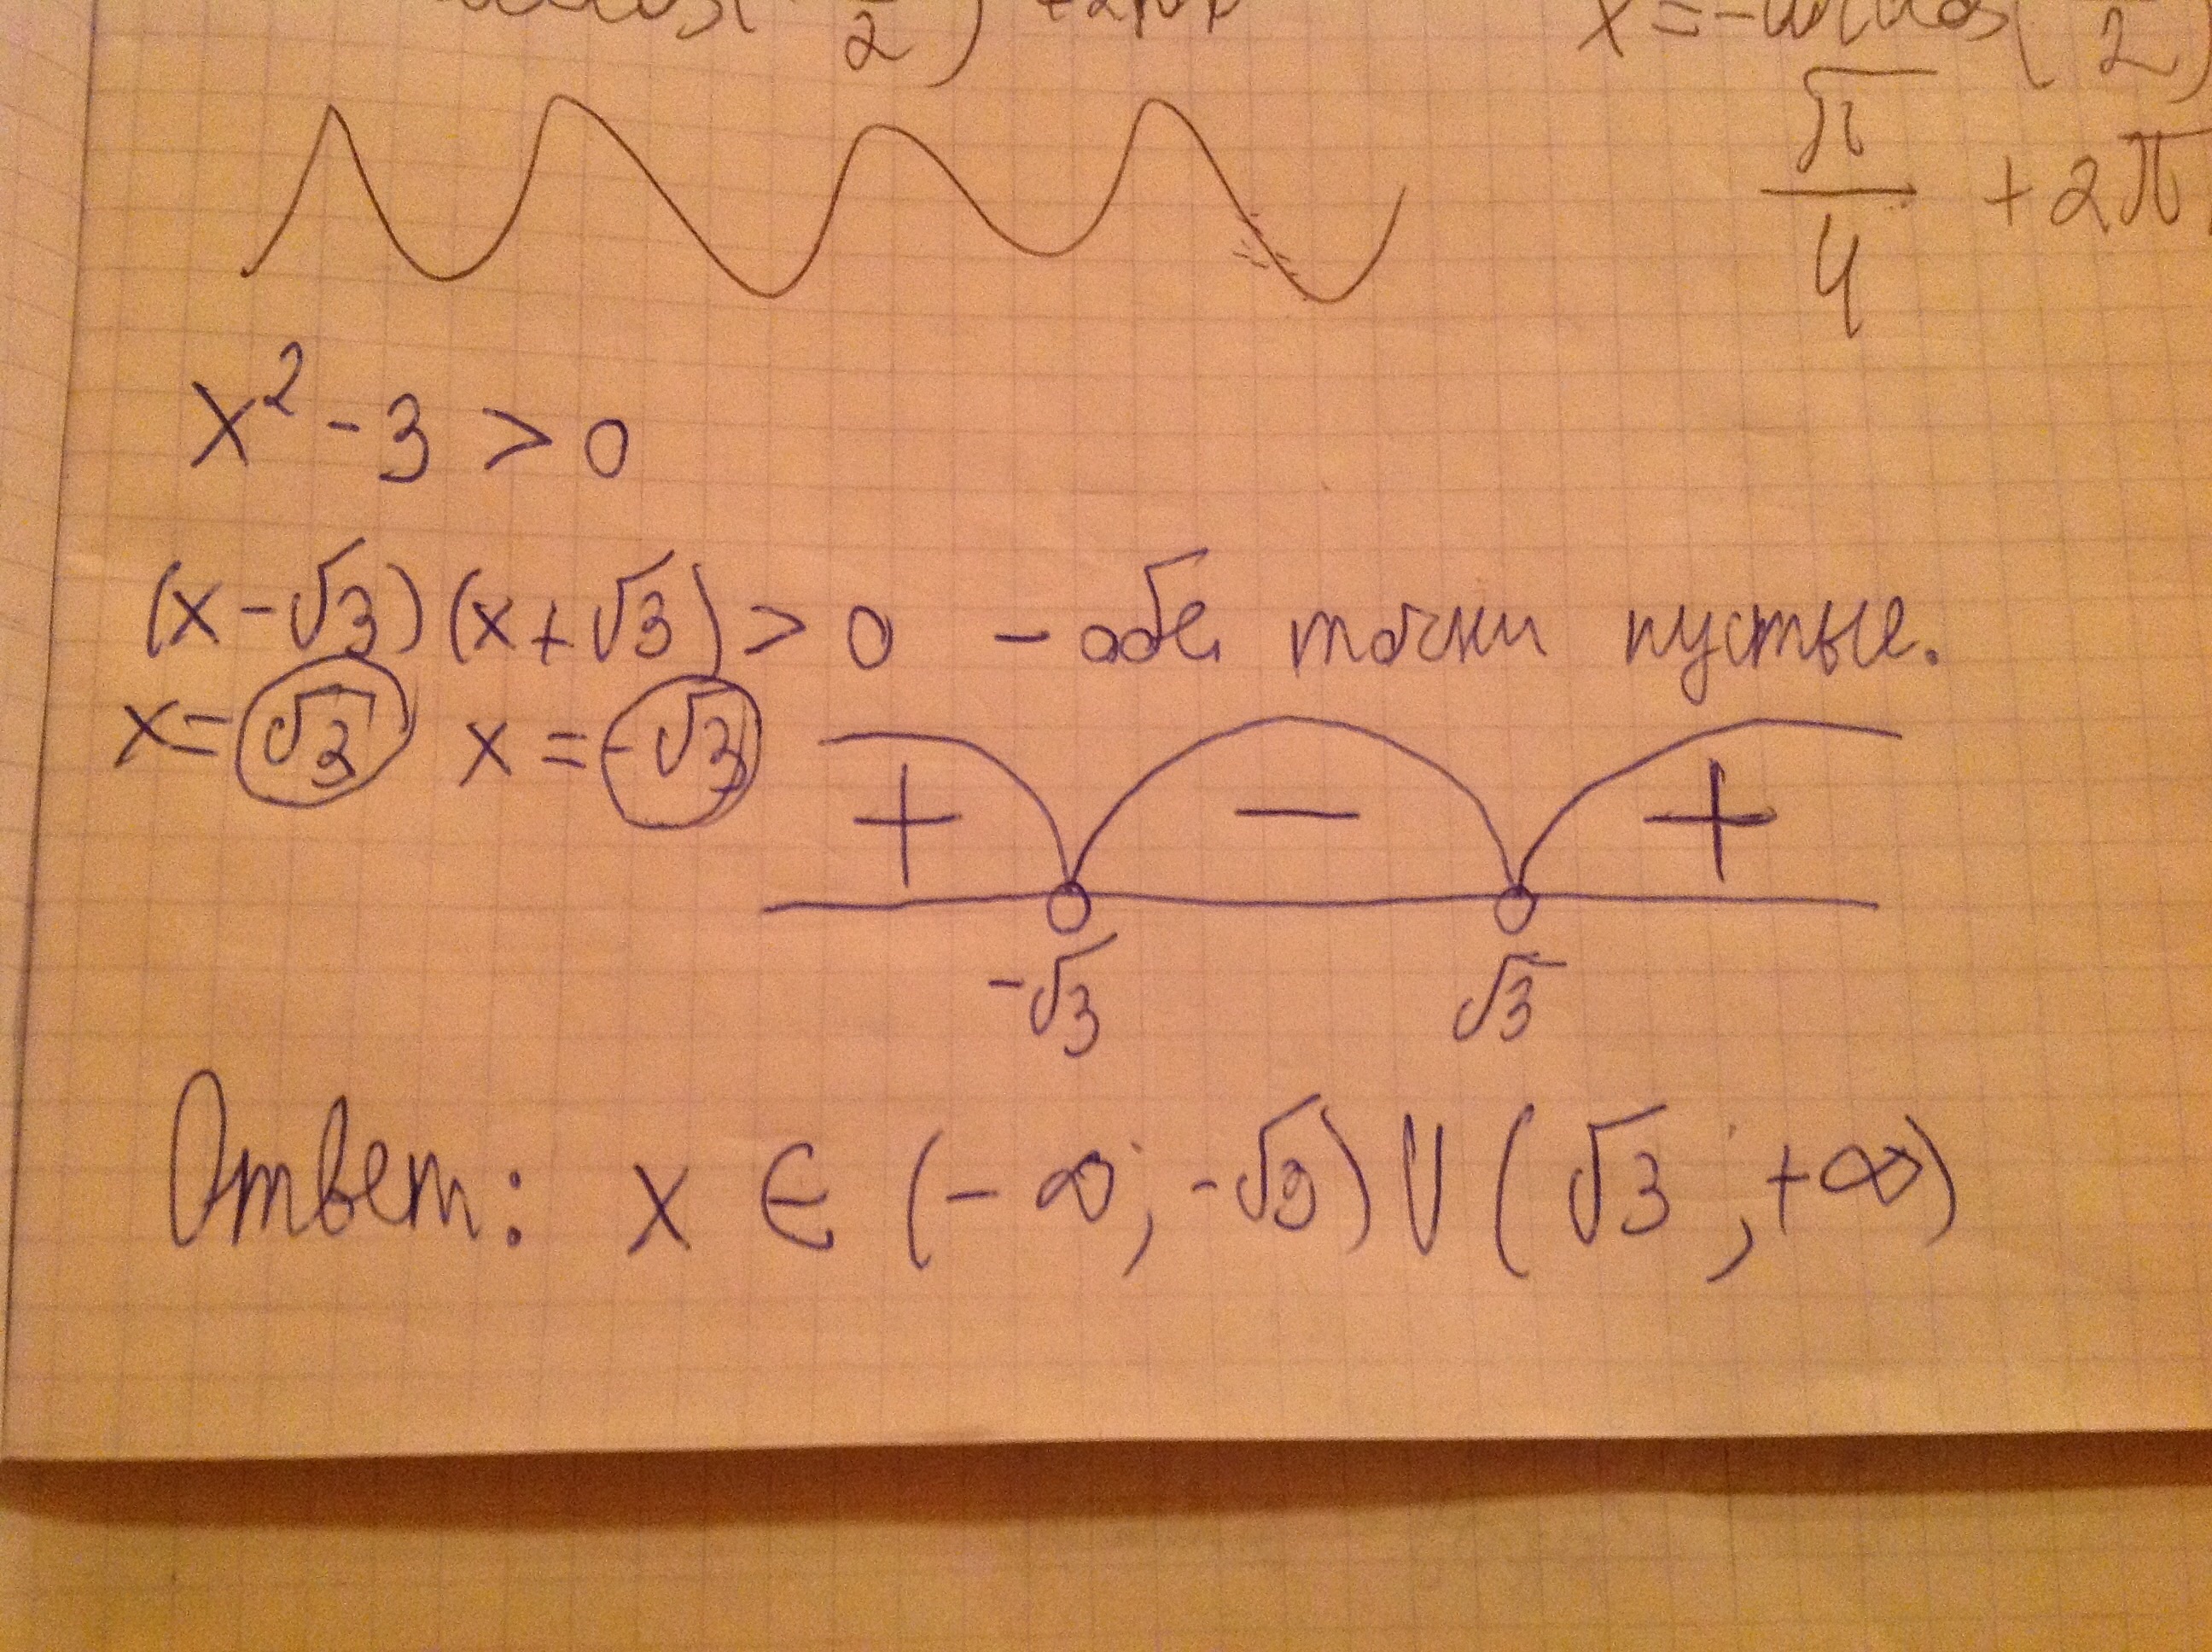 2
x = -arccos( 2 )
π
4 + 2π
x² - 3 > 0
(x - √3)(x + √3) > 0 - обе точки пустые.
x = √3 x = -√3
+ - +
-√3 √3
Ответ: x ∈ (-∞; -√3) ∪ (√3; +∞)